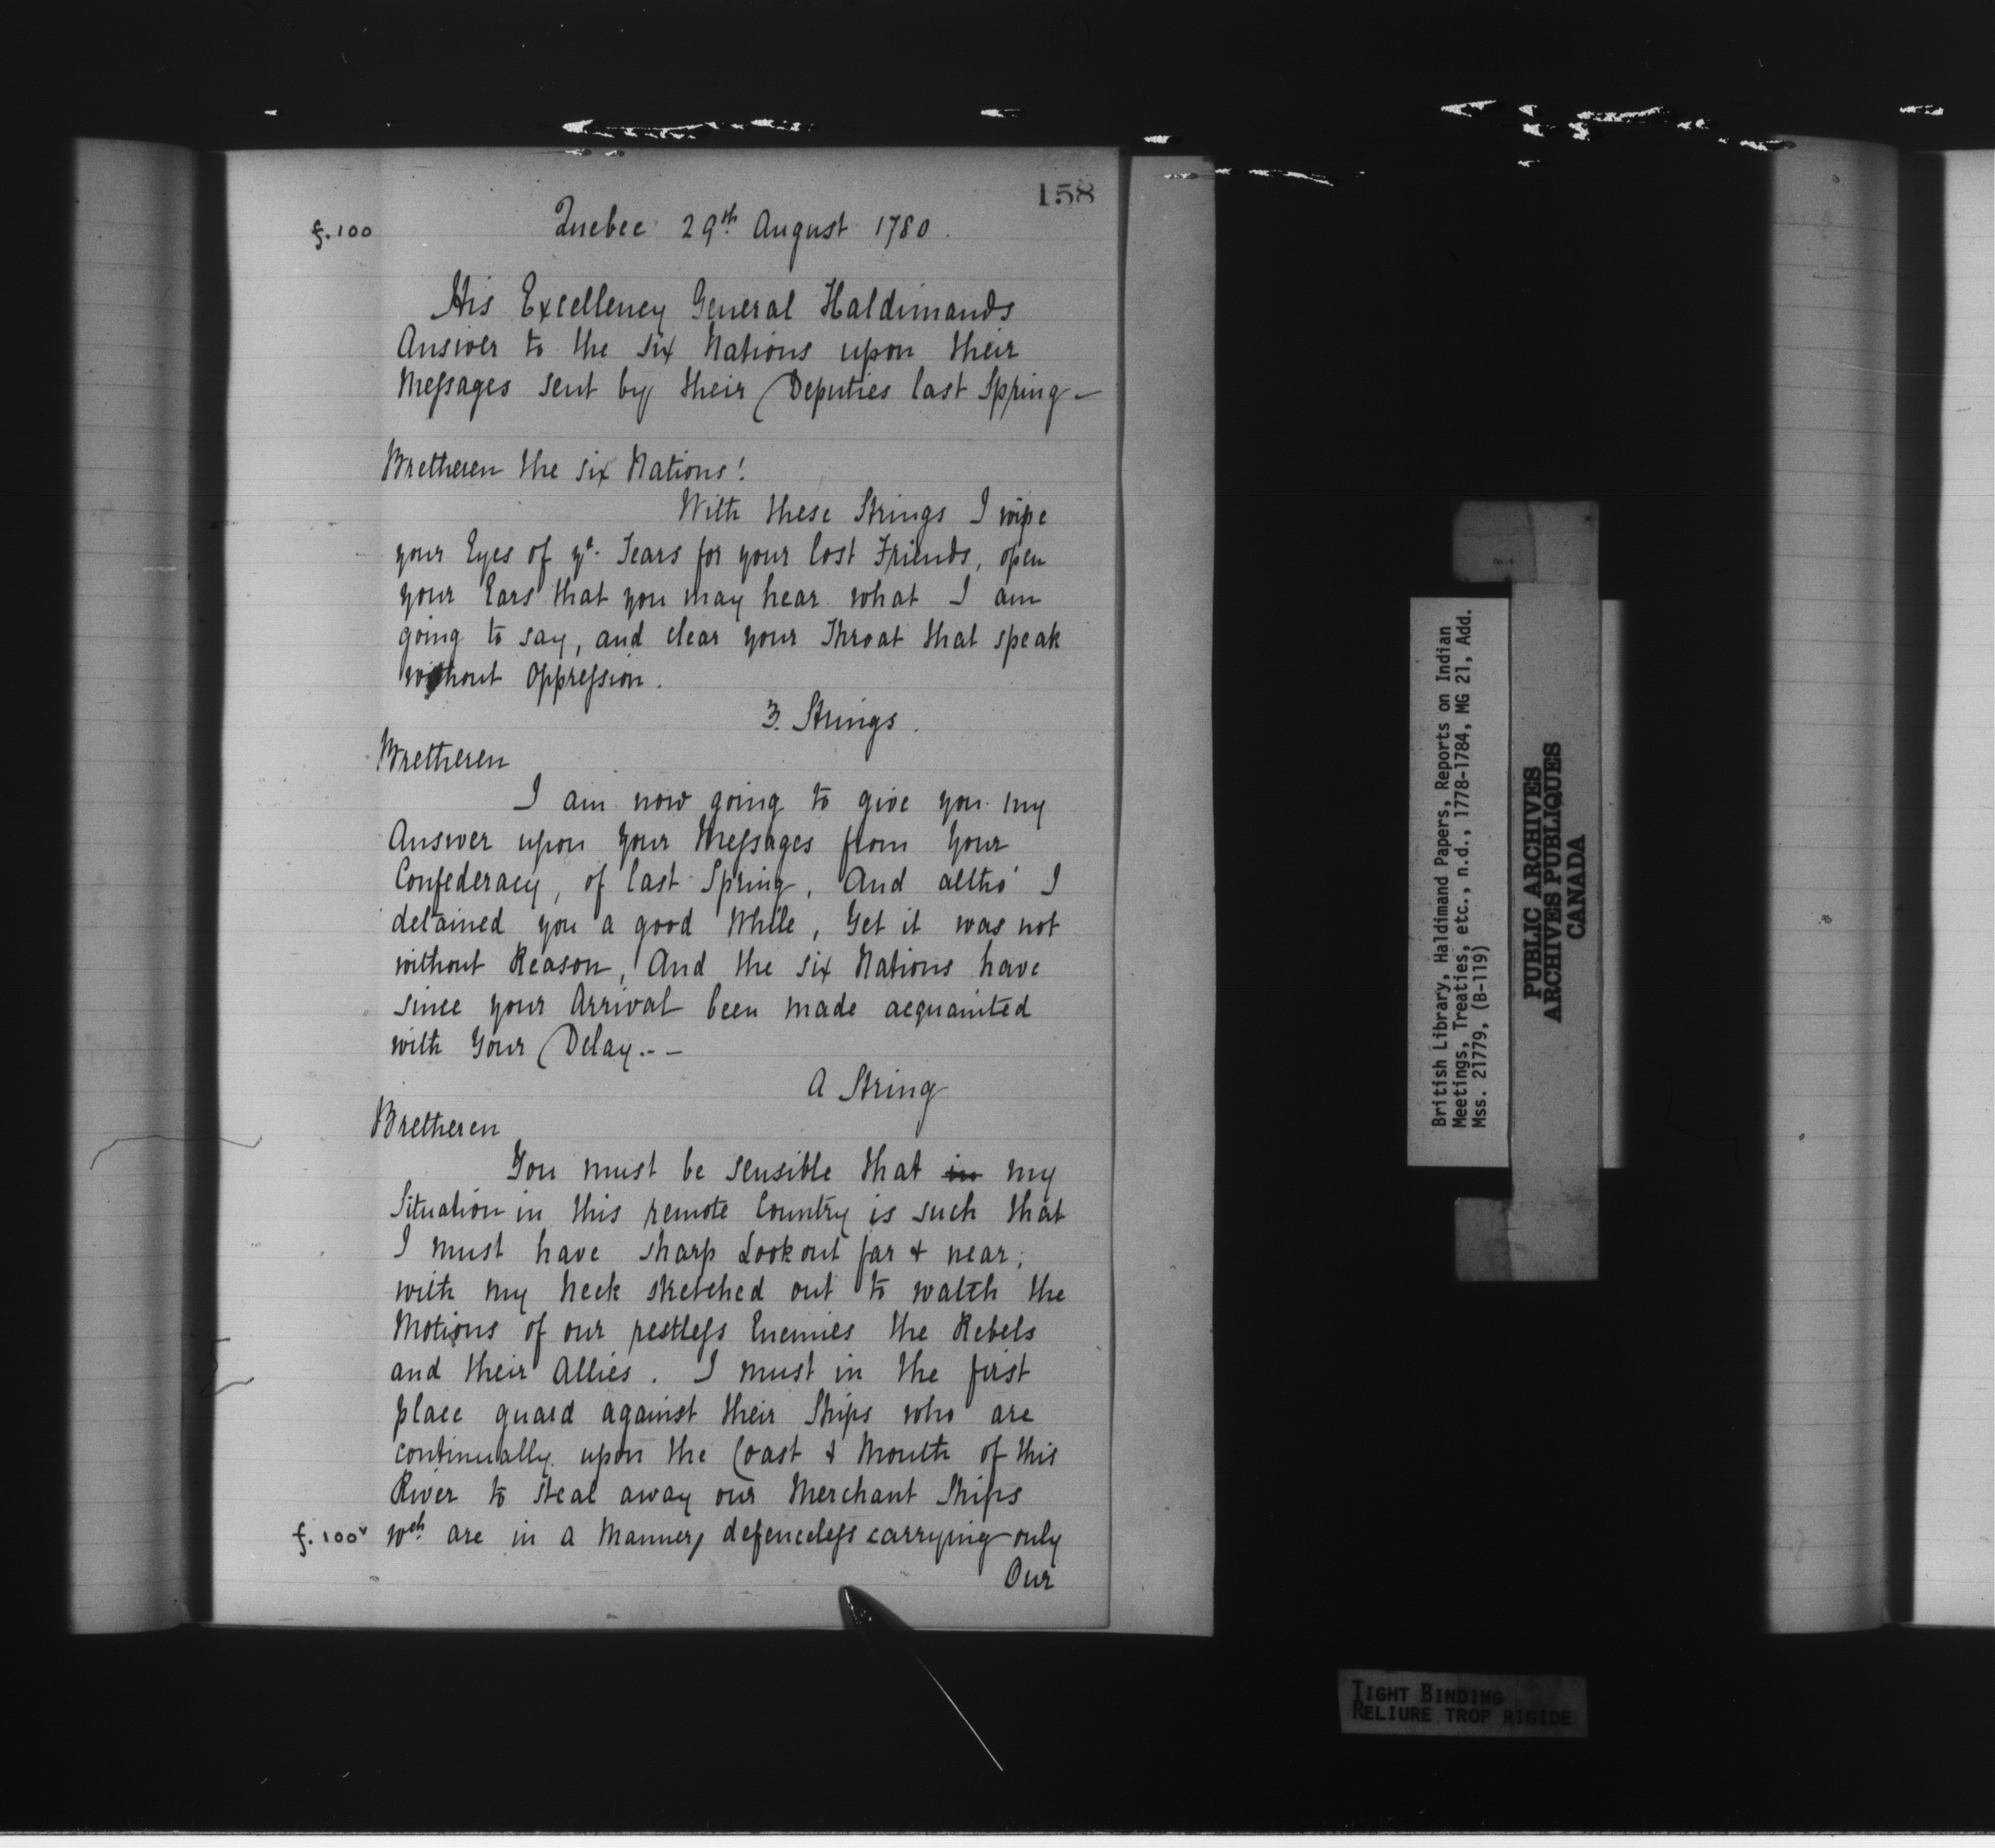 158
f.100 Quebec 29th August 1780.
His Excellency General Haldimands
Answer to the six Nations upon their
Messages sent by their Deputies last Spring—
Bretheren the six Nations!
With these Strings I wipe
your Eyes of yr. Tears for your lost Friends, open
your Ears that you may hear what I am
going to say, and clear your Throat that speak
without Oppression.
3. Strings.
Bretheren
I am now going to give you my
Answer upon Your Messages from Your
Confederacy, of last Spring, And altho' I
detained you a good While, Yet it was not
without Reason, And the six Nations have
since your Arrival been made acquainted
with Your Delay.--
A String
Bretheren
You must be sensible that in my
Situation in this remote Country is such that
I must have sharp Lookout far & near,
with my Neck stretched out to watch the
Motions of our restless Enemies the Rebels
and their Allies. I must in the first
place guard against their Ships who are
continually upon the Coast & Mouth of this
River to steal away our Merchant Ships
f.100v wch. are in a Manner, defenceless carrying only
Our
British Library, Haldimand Papers, Reports on Indian
Meetings, Treaties, etc., n.d., 1778-1784, MG 21, Add.
Mss. 21779, (B-119)
PUBLIC ARCHIVES
ARCHIVES PUBLIQUES
CANADA
TIGHT BINDING
RELIURE TROP RIGIDE